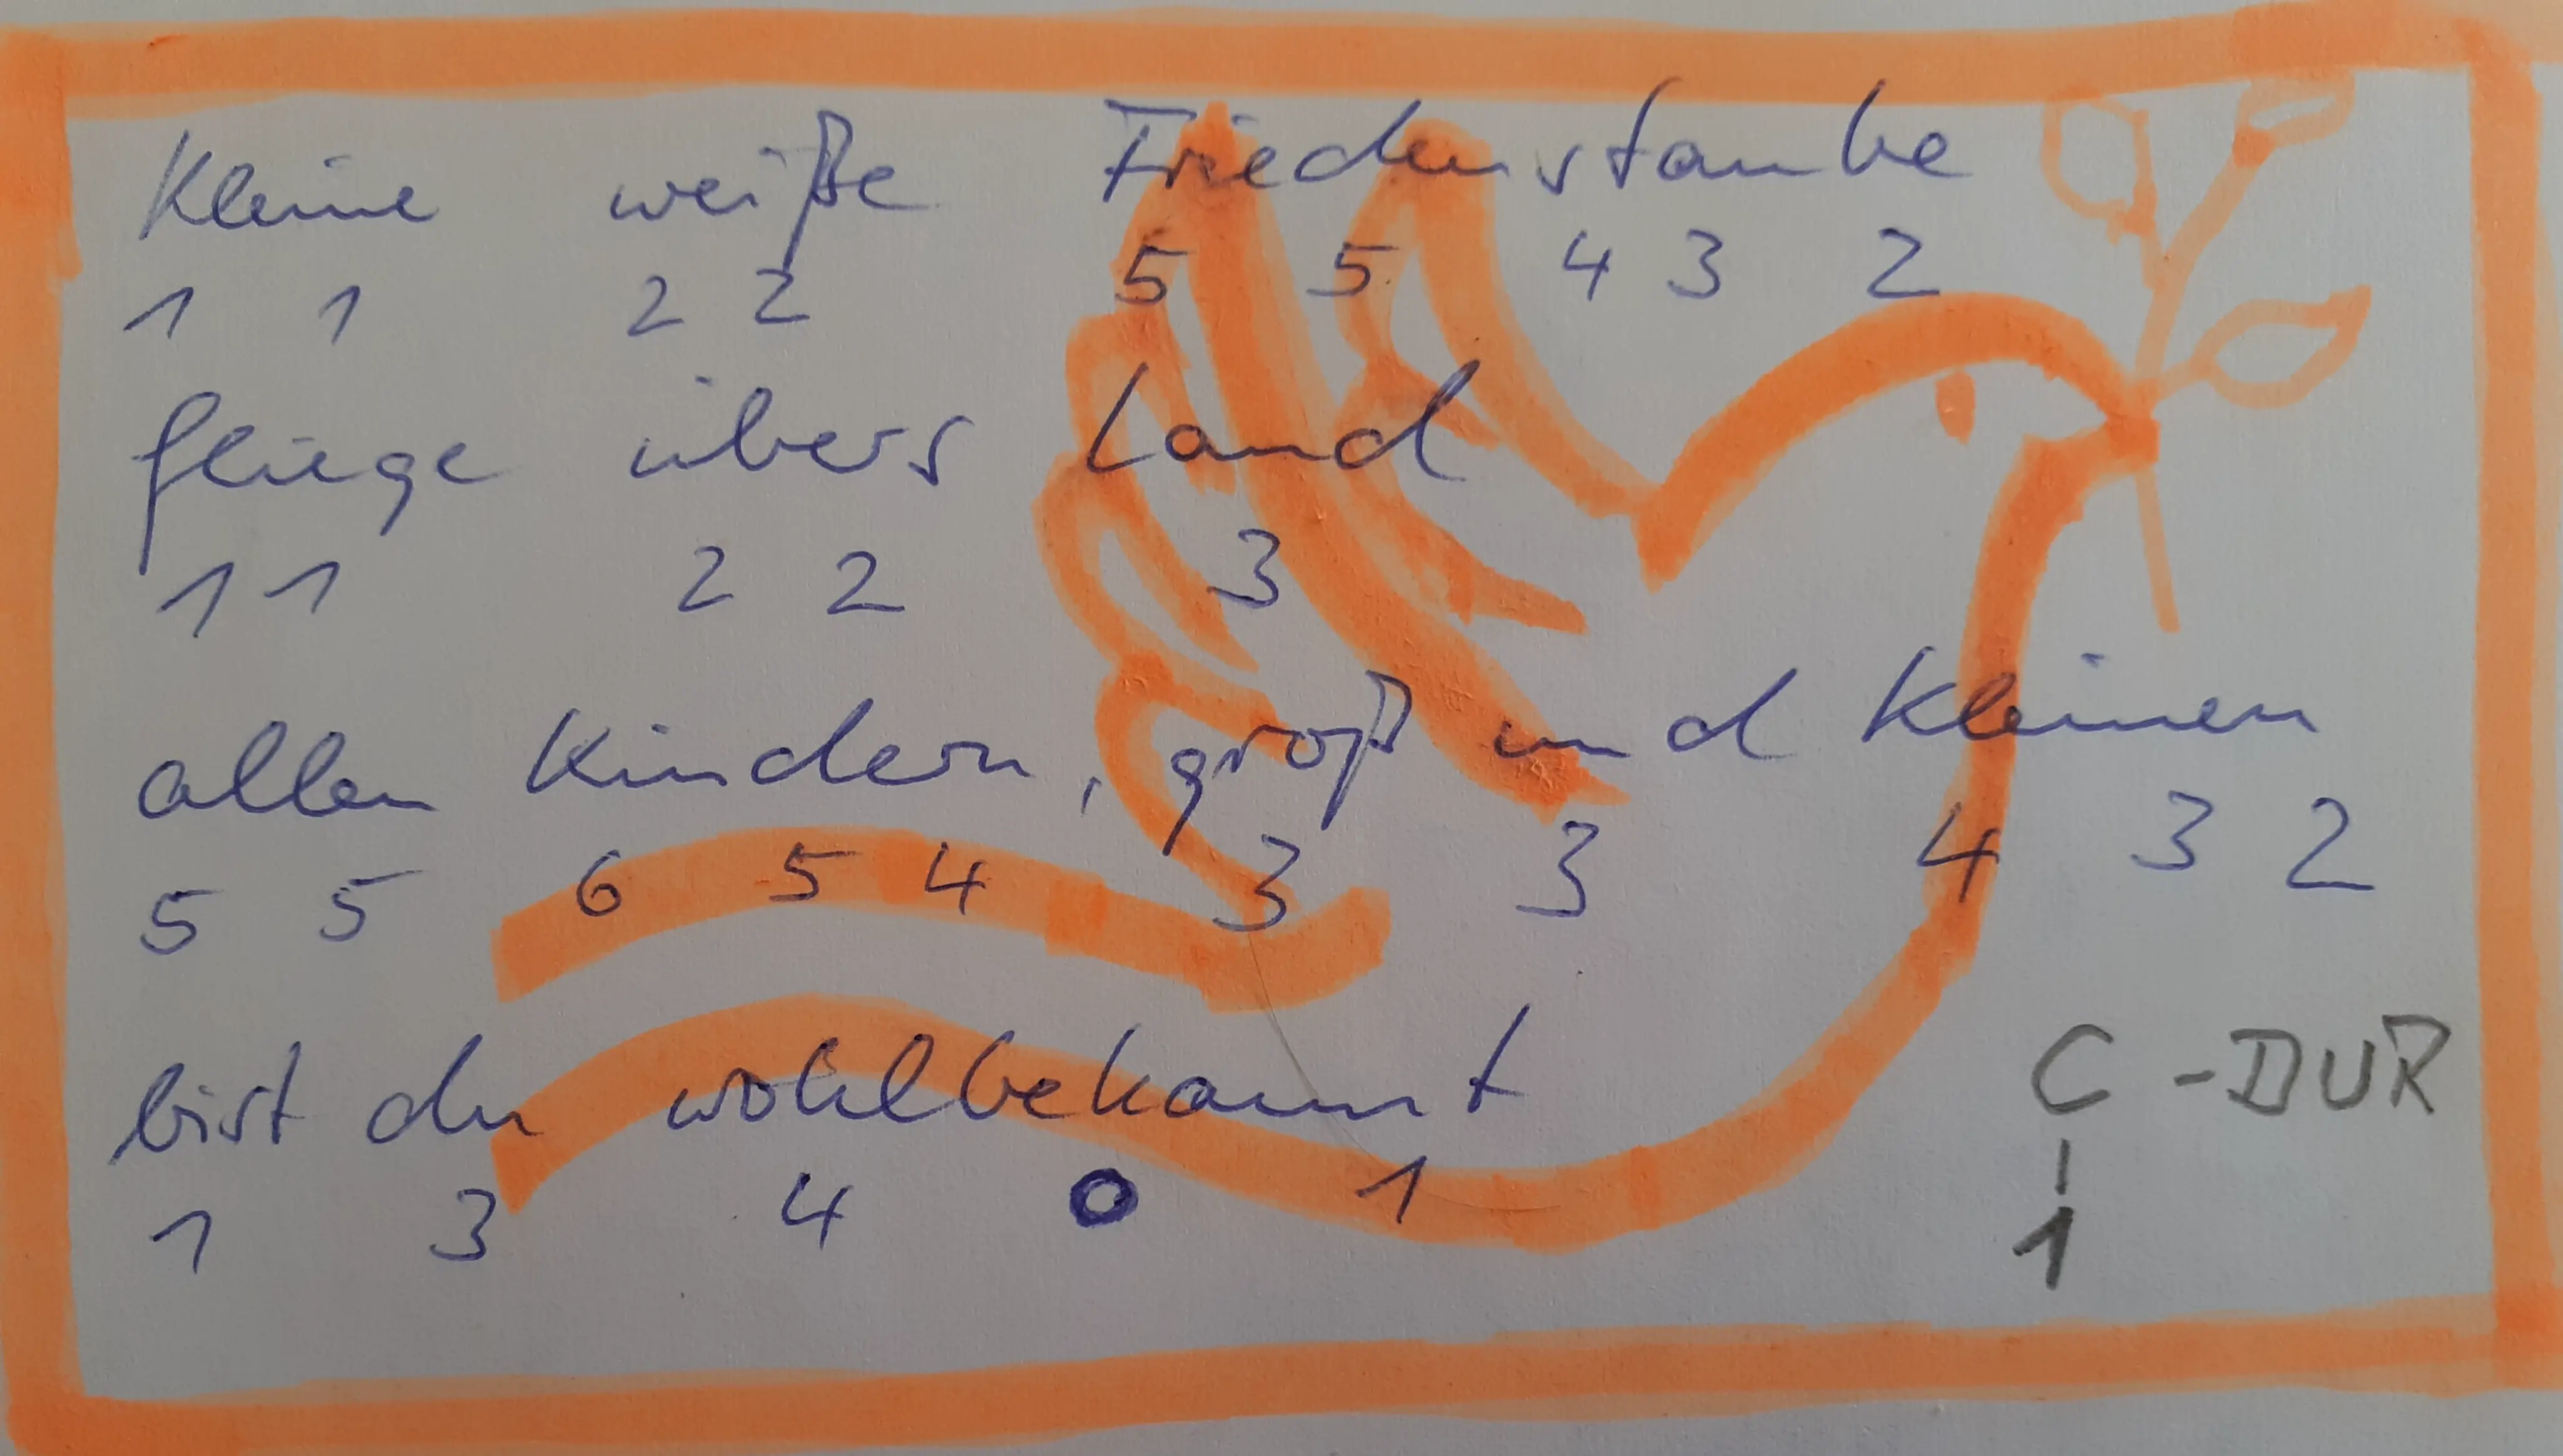 Kleine weiße Friedenstaube
1 1 2 2 5 5 4 3 2
fliege übers Land
1 1 2 2 3
allen Kindern, groß und kleinen
5 5 6 5 4 3 3 4 3 2
bist du wohlbekannt
1 3 4 0 1
C - DUR
1